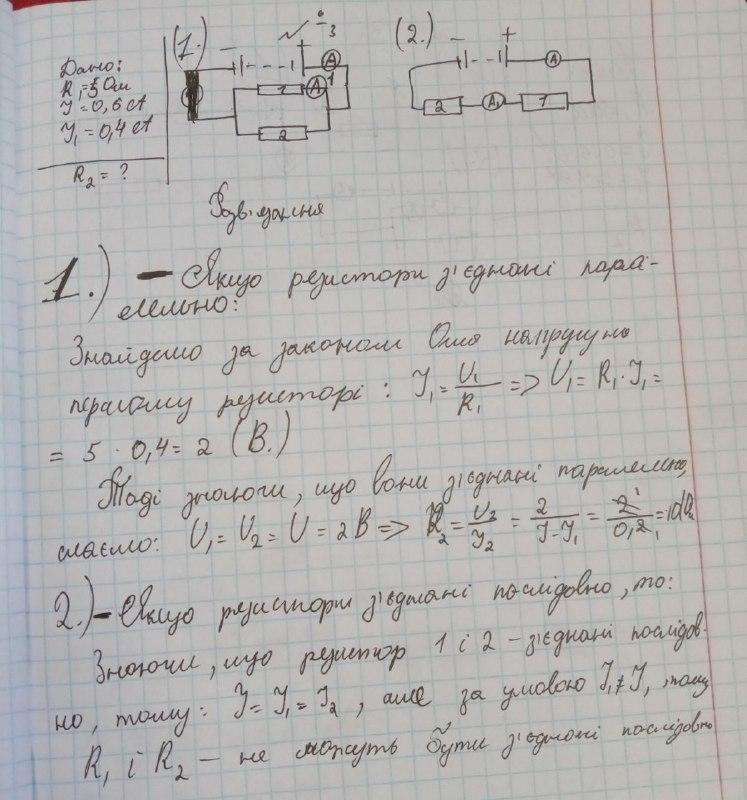 (1.)
(2.)
Дано:
R₁=5 Ом
I=0,6 A
I₁=0,4 A
R₂=?
− + A
1 A 1
2
− + A
2 A₁ 1
Розв'язання
1.) – Якщо резистори з'єднані пара-
лельно:
Знайдемо за законом Ома напругу на
першому резисторі: I₁ = U₁/R₁ => U₁ = R₁·I₁ =
= 5 · 0,4 = 2 (В.)
Тоді знаючи, що вони з'єднані паралельно,
маємо: U₁ = U₂ = U = 2В => R₂ = U₂/I₂ = 2/(I-I₁) = 2/0,2 =
2.) – Якщо резистори з'єднані послідовно, то:
Знаючи, що резистор 1 і 2 – з'єднані послідов-
но, тому: I = I₁ = I₂, але за умовою I₁ ≠ I, тому
R₁ і R₂ – не можуть бути з'єднані послідовно